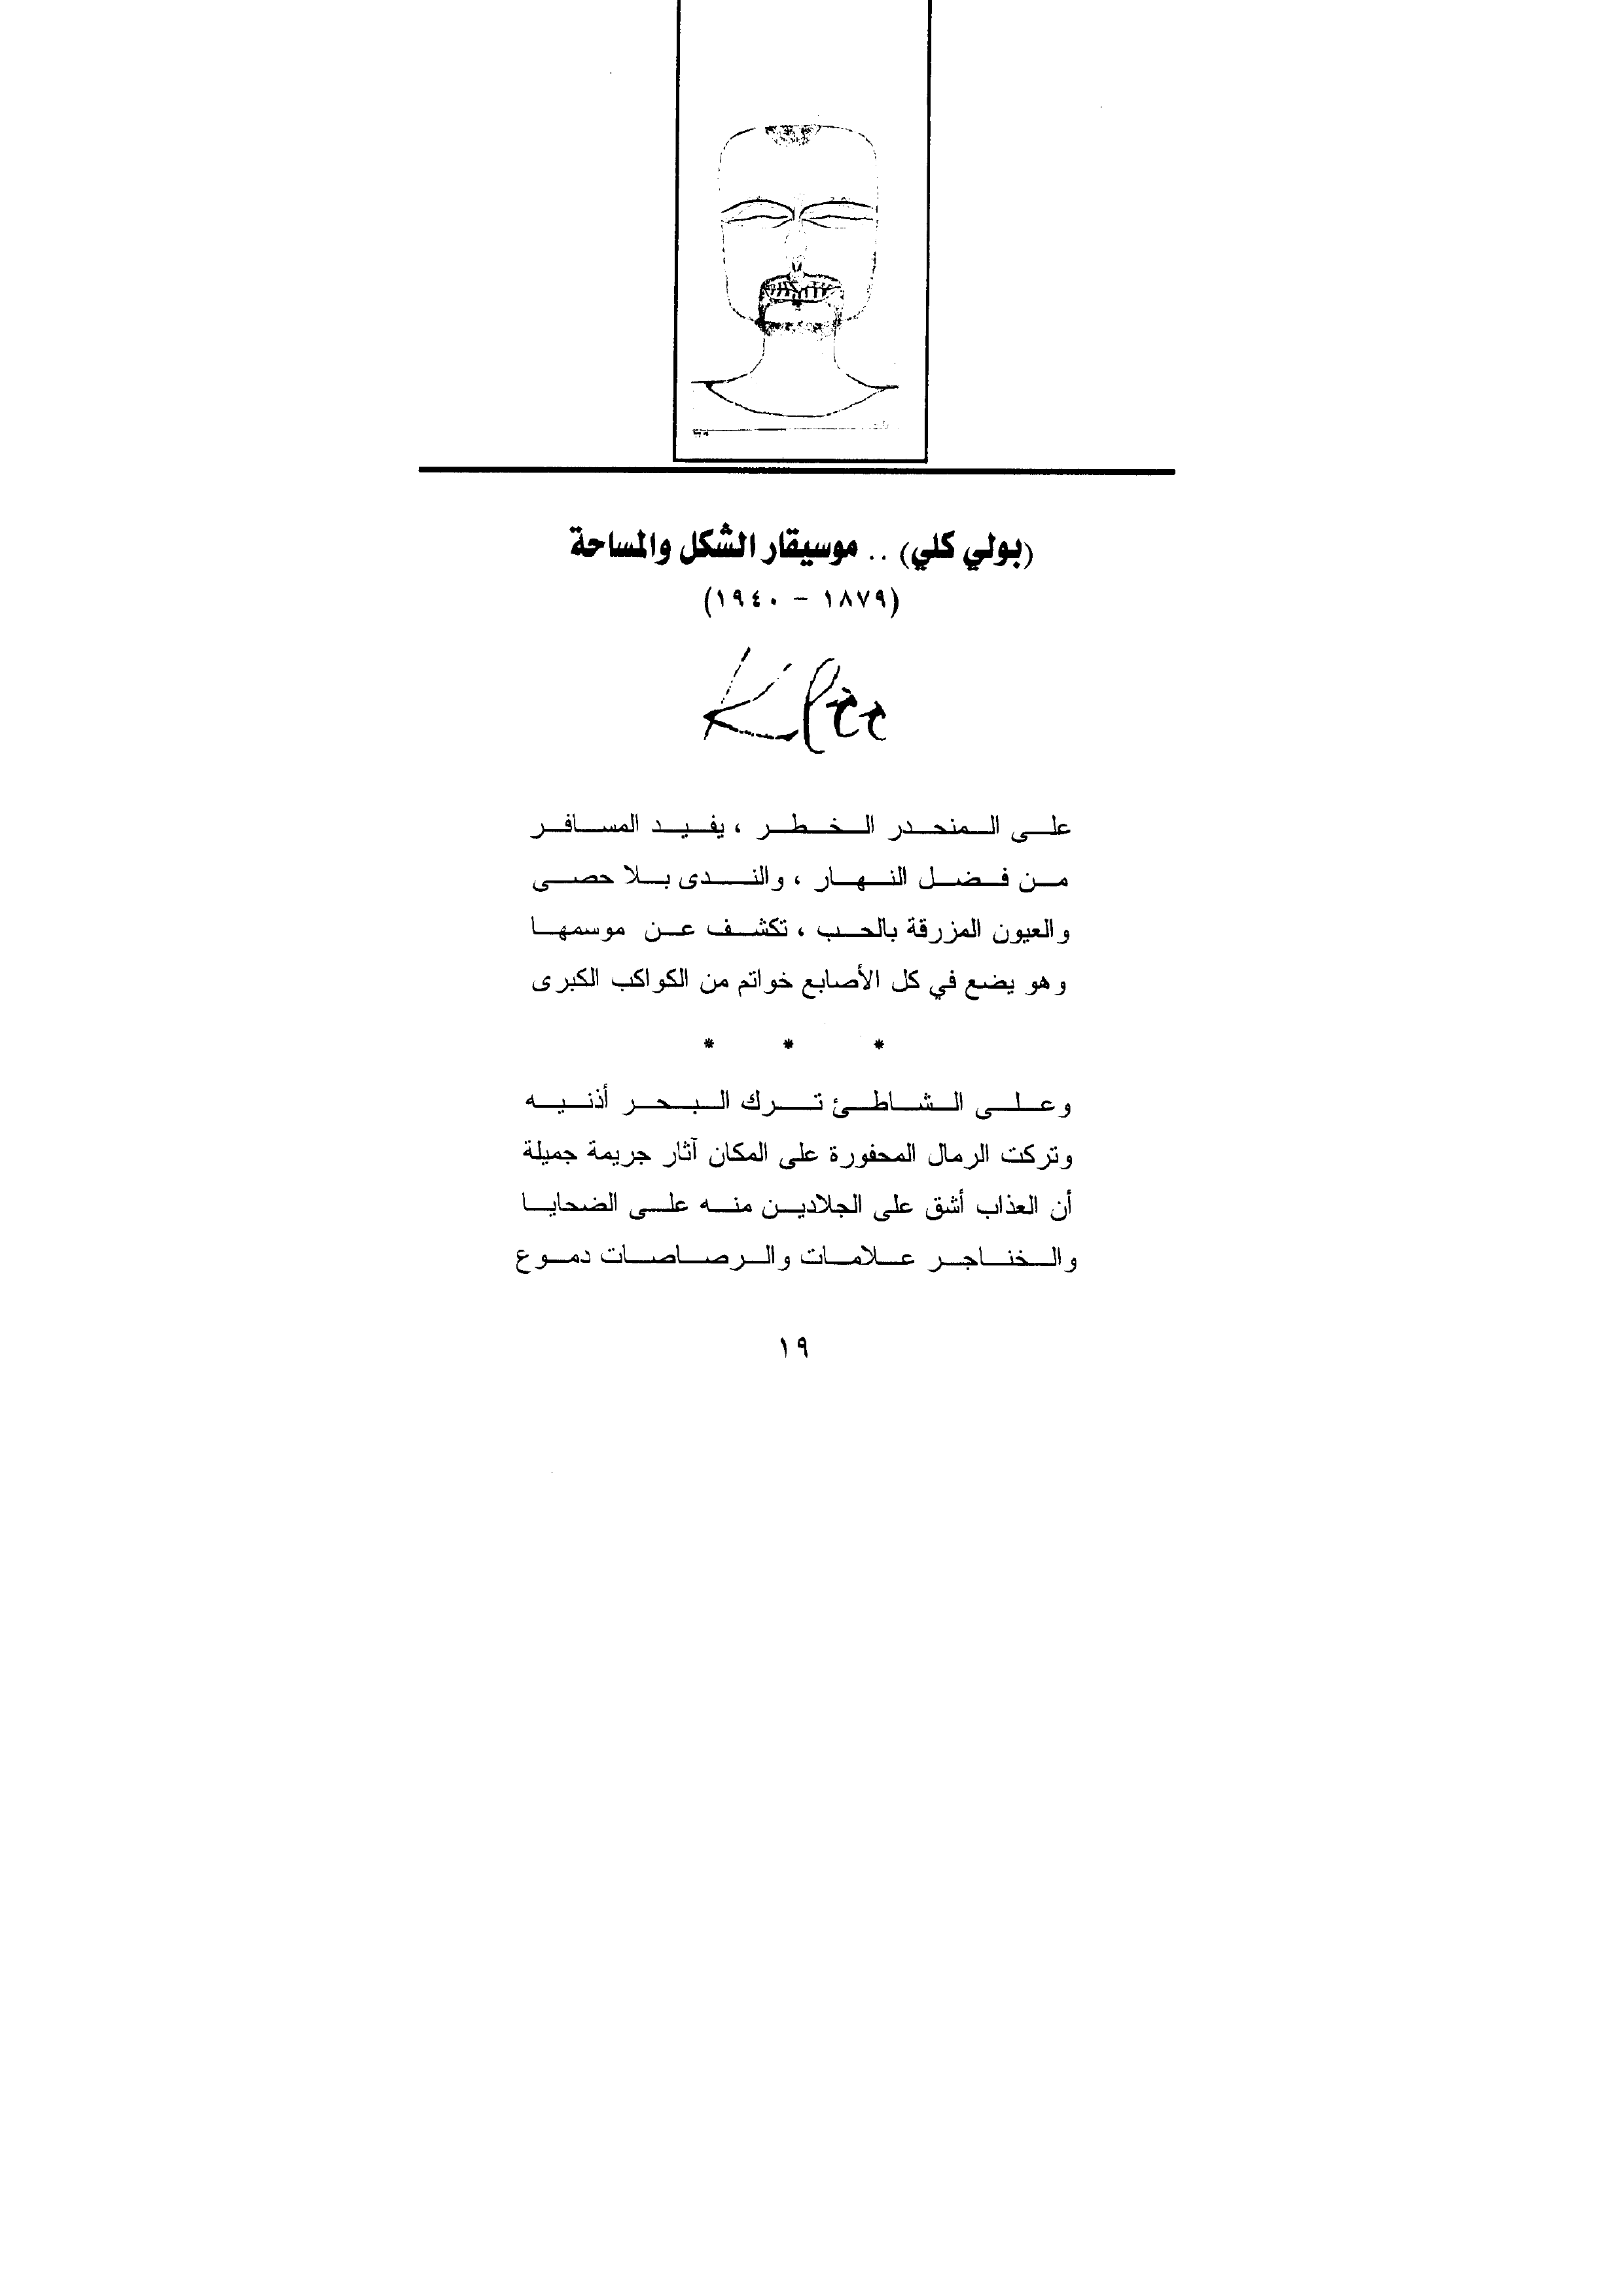 (بولي كلي) .. موسيقار الشكل والمساحة
(١٨٧٩ - ١٩٤٠)
Klee
على المنحدر الخطر ، يفيد المسافر
من فضل النهار ، والندى بلا حصى
والعيون المزرقة بالحب ، تكشف عن موسمها
وهو يضع في كل الأصابع خواتم من الكواكب الكبرى
* * *
وعلى الشاطئ ترك البحر أذنيه
وتركت الرمال المحفورة على المكان آثار جريمة جميلة
أن العذاب أشق على الجلادين منه على الضحايا
والخناجر علامات والرصاصات دموع
١٩